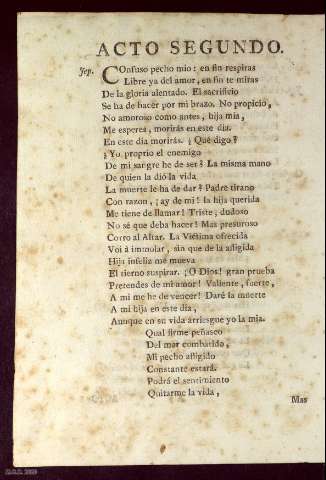 ACTO SEGUNDO.
Jep. COnfuso pecho mio: en fin respiras
Libre ya del amor, en fin te miras
De la gloria alentado. El sacrificio
Se ha de hacer por mi brazo. No propicio,
No amoroso como antes, hija mia,
Me esperes, morirás en este dia.
En este dia morirás. ¡ Qué digo?
¿ Yo proprio el enemigo
De mi sangre he de ser? La misma mano
De quien la dió la vida
La muerte le ha de dar? Padre tirano
Con razon, ¡ ay de mi! la hija querida
Me tiene de llamar! Triste, dudoso
No sé que deba hacer! Mas presuroso
Corro al Altar. La Victima ofrecida
Voi à immolar, sin que de la afligida
Hija infeliz me mueva
El tierno suspirar. ¡O Dios! gran prueba
Pretendes de mi amor! Valiente, fuerte,
A mi me he de vencer! Daré la muerte
A mi hija en este dia,
Aunque en su vida arriesgue yo la mia.
Qual firme peñasco
Del mar combatido,
Mi pecho afligido
Constante estará.
Podrá el sentimiento
Quitarme la vida,
Mas